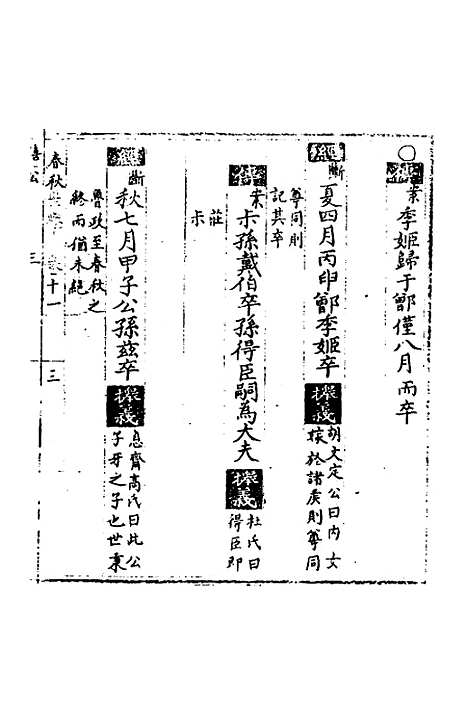 ○傳案季姬歸于鄫僅八月而卒
經斷夏四月丙申鄫季姬卒據義胡文定公曰内女
嫁於諸侯則尊同
尊同則
記其卒
傳案尗孫戴伯卒孫得臣嗣為大夫據義杜氏曰
得臣即
莊
尗
經斷秋七月甲子公孫茲卒據義息齋高氏曰此公
子牙之子也世秉
魯政至春秋之
終而猶未絕
春秋 卷十一 三
僖公 三